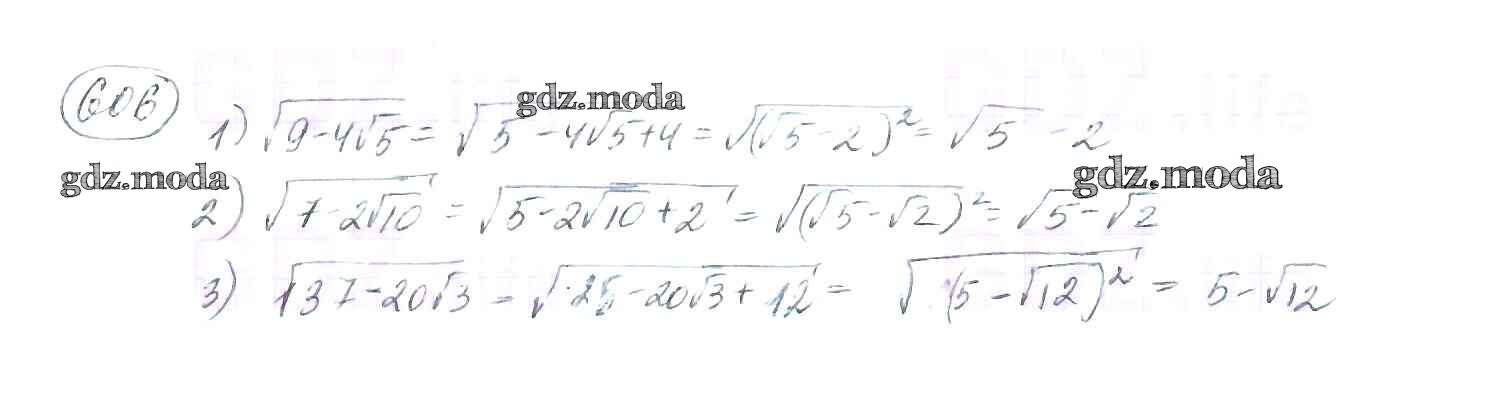 606
gdz.moda
1) √(9-4√5) = √(5-4√5+4) = √((√5-2)²) = √5-2
gdz.moda
gdz.moda
2) √(7-2√10) = √(5-2√10+2) = √((√5-√2)²) = √5-√2
3) √(37-20√3) = √(25-20√3+12) = √((5-√12)²) = 5-√12